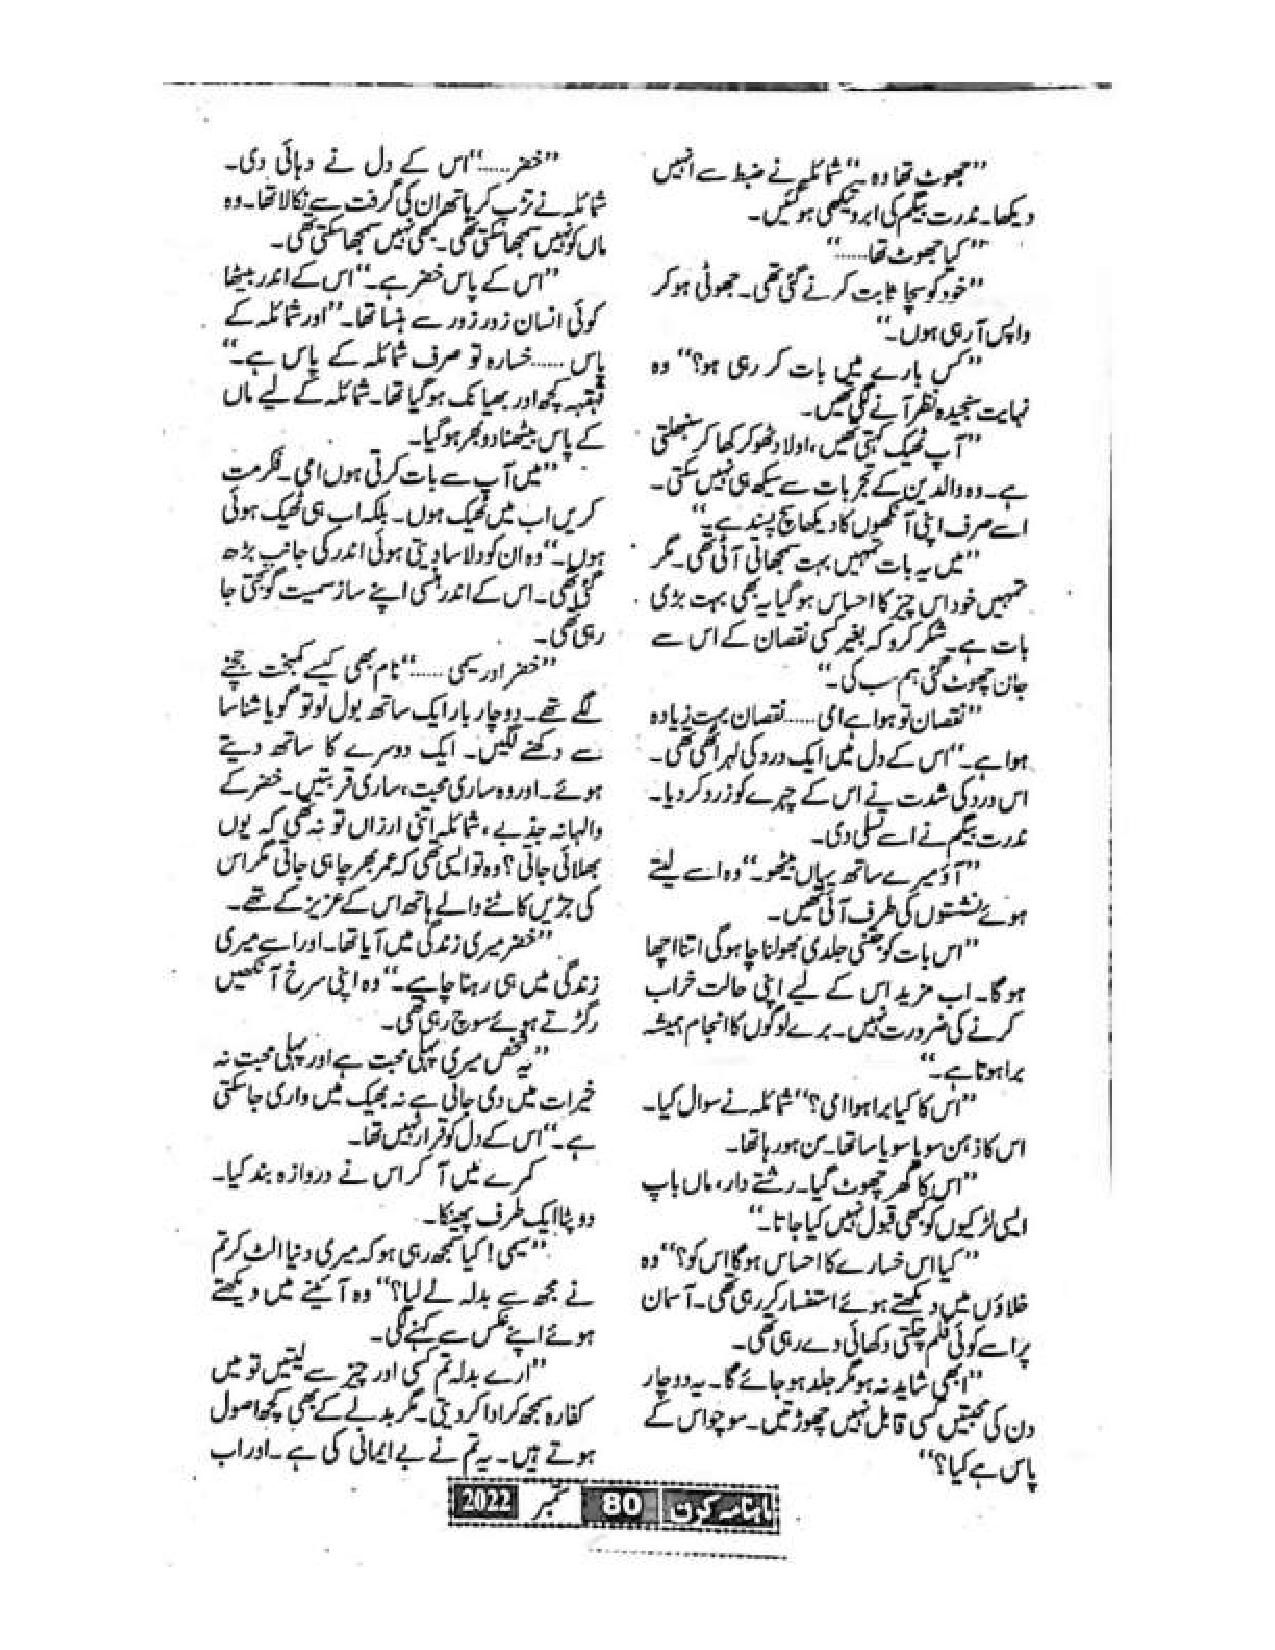 ”جھوٹ تھا وہ۔“ شمائلہ نے ضبط سے انہیں
دیکھا۔ ندرت بیگم کی ابرو تیکھی ہو گئیں۔
”کیا جھوٹ تھا......“
”خود کو سچا ثابت کرنے گئی تھی۔ جھوٹی ہو کر
واپس آ رہی ہوں۔“
”کس بارے میں بات کر رہی ہو؟“ وہ
نہایت سنجیدہ نظر آنے لگی تھیں۔
”آپ ٹھیک کہتی تھیں، اولاد ٹھوکر کھا کر سنبھلتی
ہے۔ وہ والدین کے تجربات سے سیکھ ہی نہیں سکتی۔
اسے صرف اپنی آنکھوں کا دیکھا سچ پسند ہے۔“
”میں یہ بات تمہیں بہت سمجھاتی آئی تھی۔ مگر
تمہیں خود اس چیز کا احساس ہو گیا یہ بھی بہت بڑی
بات ہے۔ شکر کرو کہ بغیر کسی نقصان کے اس سے
جان چھوٹ گئی ہم سب کی۔“
”نقصان تو ہوا ہے امی...... نقصان بہت زیادہ
ہوا ہے۔“ اس کے دل میں ایک درد کی لہر اٹھی تھی۔
اس درد کی شدت نے اس کے چہرے کو زرد کر دیا۔
ندرت بیگم نے اسے تسلی دی۔
”آؤ میرے ساتھ یہاں بیٹھو۔“ وہ اسے لیتے
ہوئے نشستوں کی طرف آئی تھیں۔
”اس بات کو جتنی جلدی بھولنا چاہو گی اتنا اچھا
ہوگا۔ اب مزید اس کے لیے اپنی حالت خراب
کرنے کی ضرورت نہیں۔ برے لوگوں کا انجام ہمیشہ
برا ہوتا ہے۔“
”اس کا کیا برا ہوا امی؟“ شمائلہ نے سوال کیا۔
اس کا ذہن سویا سویا سا تھا۔ سن ہو رہا تھا۔
”اس کا گھر چھوٹ گیا۔ رشتے دار، ماں باپ
ایسی لڑکیوں کو کبھی قبول نہیں کیا جاتا۔“
”کیا اس خسارے کا احساس ہوگا اس کو؟“ وہ
خلاؤں میں دیکھتے ہوئے استفسار کر رہی تھی۔ آسمان
پر اسے کوئی فلم چلتی دکھائی دے رہی تھی۔
”ابھی شاید نہ ہو مگر جلد ہو جائے گا۔ یہ دو چار
دن کی محبتیں کسی قابل نہیں چھوڑتیں۔ سوچو اس کے
پاس ہے کیا؟“
”خضر......“ اس کے دل نے دہائی دی۔
شمائلہ نے تڑپ کر ہاتھ ان کی گرفت سے نکالا تھا۔ وہ
ماں کو نہیں سمجھا سکتی تھی۔ کبھی نہیں سمجھا سکتی تھی۔
”اس کے پاس خضر ہے۔“ اس کے اندر بیٹھا
کوئی انسان زور زور سے ہنسا تھا۔ ”اور شمائلہ کے
پاس...... خسارہ تو صرف شمائلہ کے پاس ہے۔“
قہقہہ کچھ اور بھیانک ہو گیا تھا۔ شمائلہ کے لیے ماں
کے پاس بیٹھنا دوبھر ہو گیا۔
”میں آپ سے بات کرتی ہوں امی۔ فکر مت
کریں اب میں ٹھیک ہوں۔ بلکہ اب ہی ٹھیک ہوئی
ہوں۔“ وہ ان کو دلاسا دیتی ہوئی اندر کی جانب بڑھ
گئی تھی۔ اس کے اندر ہنسی اپنے ساز سمیت گونجتی جا
رہی تھی۔
”خضر اور سیمی......“ نام بھی کیسے کمبخت جچنے
لگے تھے۔ دو چار بار ایک ساتھ بول لو تو گویا شناسا
سے دکھنے لگیں۔ ایک دوسرے کا ساتھ دیتے
ہوئے۔ اور وہ ساری محبت، ساری قربتیں۔ خضر کے
والہانہ جذبے، شمائلہ اتنی ارزاں تو نہ تھی کہ یوں
بھلائی جاتی؟ وہ تو ایسی تھی کہ عمر بھر چاہی جاتی مگر اس
کی جڑیں کاٹنے والے ہاتھ اس کے عزیز کے تھے۔
”خضر میری زندگی میں آیا تھا۔ اور اسے میری
زندگی میں ہی رہنا چاہیے۔“ وہ اپنی سرخ آنکھیں
رگڑتے ہوئے سوچ رہی تھی۔
”یہ شخص میری پہلی محبت ہے اور پہلی محبت نہ
خیرات میں دی جاتی ہے نہ بھیک میں واری جا سکتی
ہے۔“ اس کے دل کو قرار نہیں تھا۔
کمرے میں آ کر اس نے دروازہ بند کیا۔
دوپٹا ایک طرف پھینکا۔
”سیمی! کیا سمجھ رہی ہو کہ میری دنیا الٹ کر تم
نے مجھ سے بدلہ لے لیا؟“ وہ آئینے میں دیکھتے
ہوئے اپنے عکس سے کہنے لگی۔
”ارے بدلہ تم کسی اور چیز سے لیتیں تو میں
کفارہ سمجھ کر ادا کر دیتی۔ مگر بدلے کے بھی کچھ اصول
ہوتے ہیں۔ یہ تم نے بے ایمانی کی ہے۔ اور اب
ماہنامہ کرن 80 ستمبر 2022